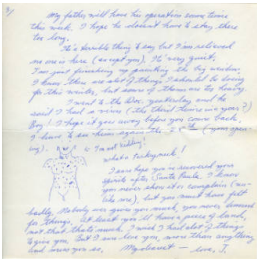 3/
My father will have his operation some time
this week. I hope he doesn't have to stay there
too long.
It's a terrible thing to say but I'm relieved
no one is here (except you). It's very quiet,
I'm just finishing up painting the big window.
I know there are a lot of things I should be doing
for this winter, but some of them are too heavy.
I went to the Doc. yesterday and he
said I had a virus (the
Boy! I hope it goes away before you come back.
I have to see him again the
ing). I'm not kidding!
What a
I sure hope you
spirits after Santa Paula. I know
you never show it or complain (un-
like me), but you must have felt
badly. Nobody ever gives you much, you never demand
for things. At least you'll have a piece of land,
not that that's much. I wish I had a lot of things
to give you. But I do love you, more than anything
My dearest — love, I,